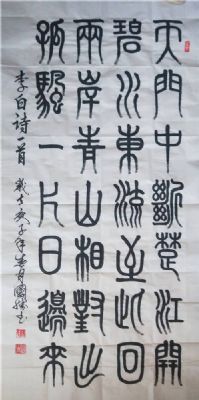 天門中斷楚江開
碧水東流至此回
兩岸青山相對出
孤帆一片日邊來
李白诗一首 庚子年春月國